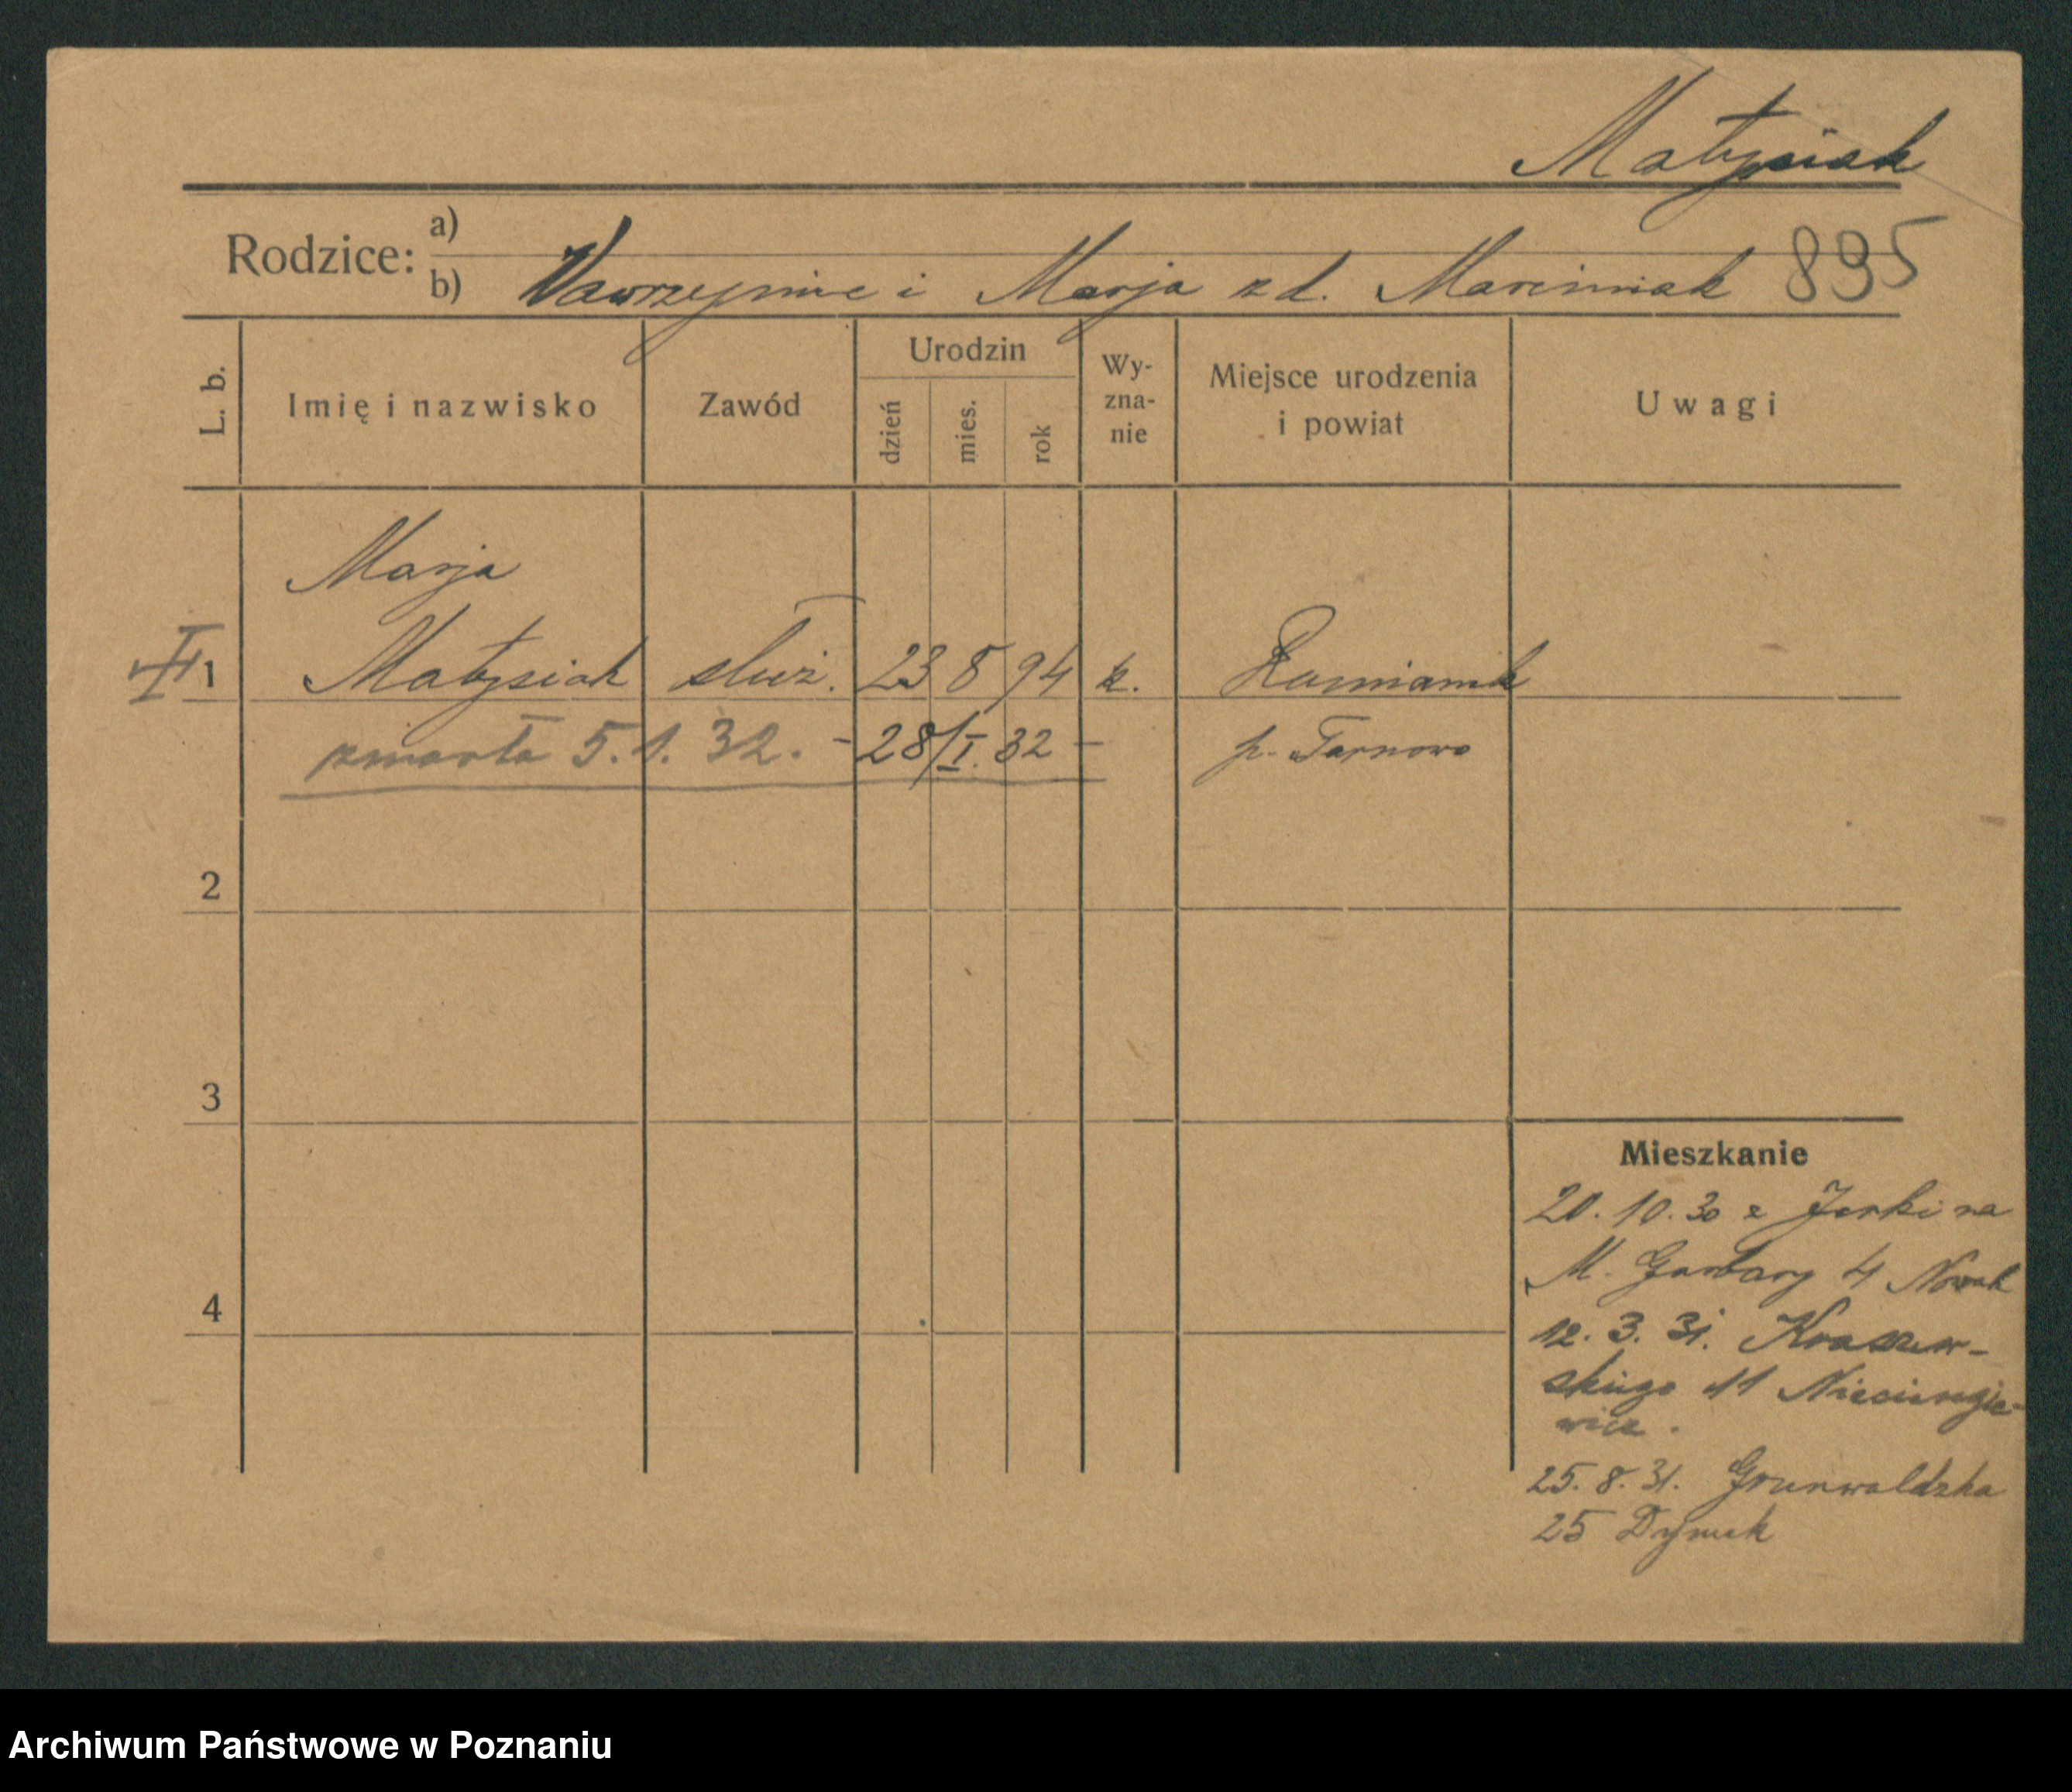 Matysiak
Rodzice: a)
b) Wawrzyniec i Marja z d. Marciniak 895
L. b.
Imię i nazwisko
Zawód
Urodzin
dzień
mies.
rok
Wy-
zna-
nie
Miejsce urodzenia
i powiat
Uwagi
Marja
1 Matysiak służ. 23 8 94 k.
zmarła 5.1.32. - 28/I.32 - p. Tarnowo
2
3
4
Mieszkanie
20.10.30 z Jerki na
M. Garbary 4 Nowak
12.3.31. Kraszew-
skiego 11
wicz.
25.8.31. Grunwaldzka
25 Dymek
Archiwum Państwowe w Poznaniu